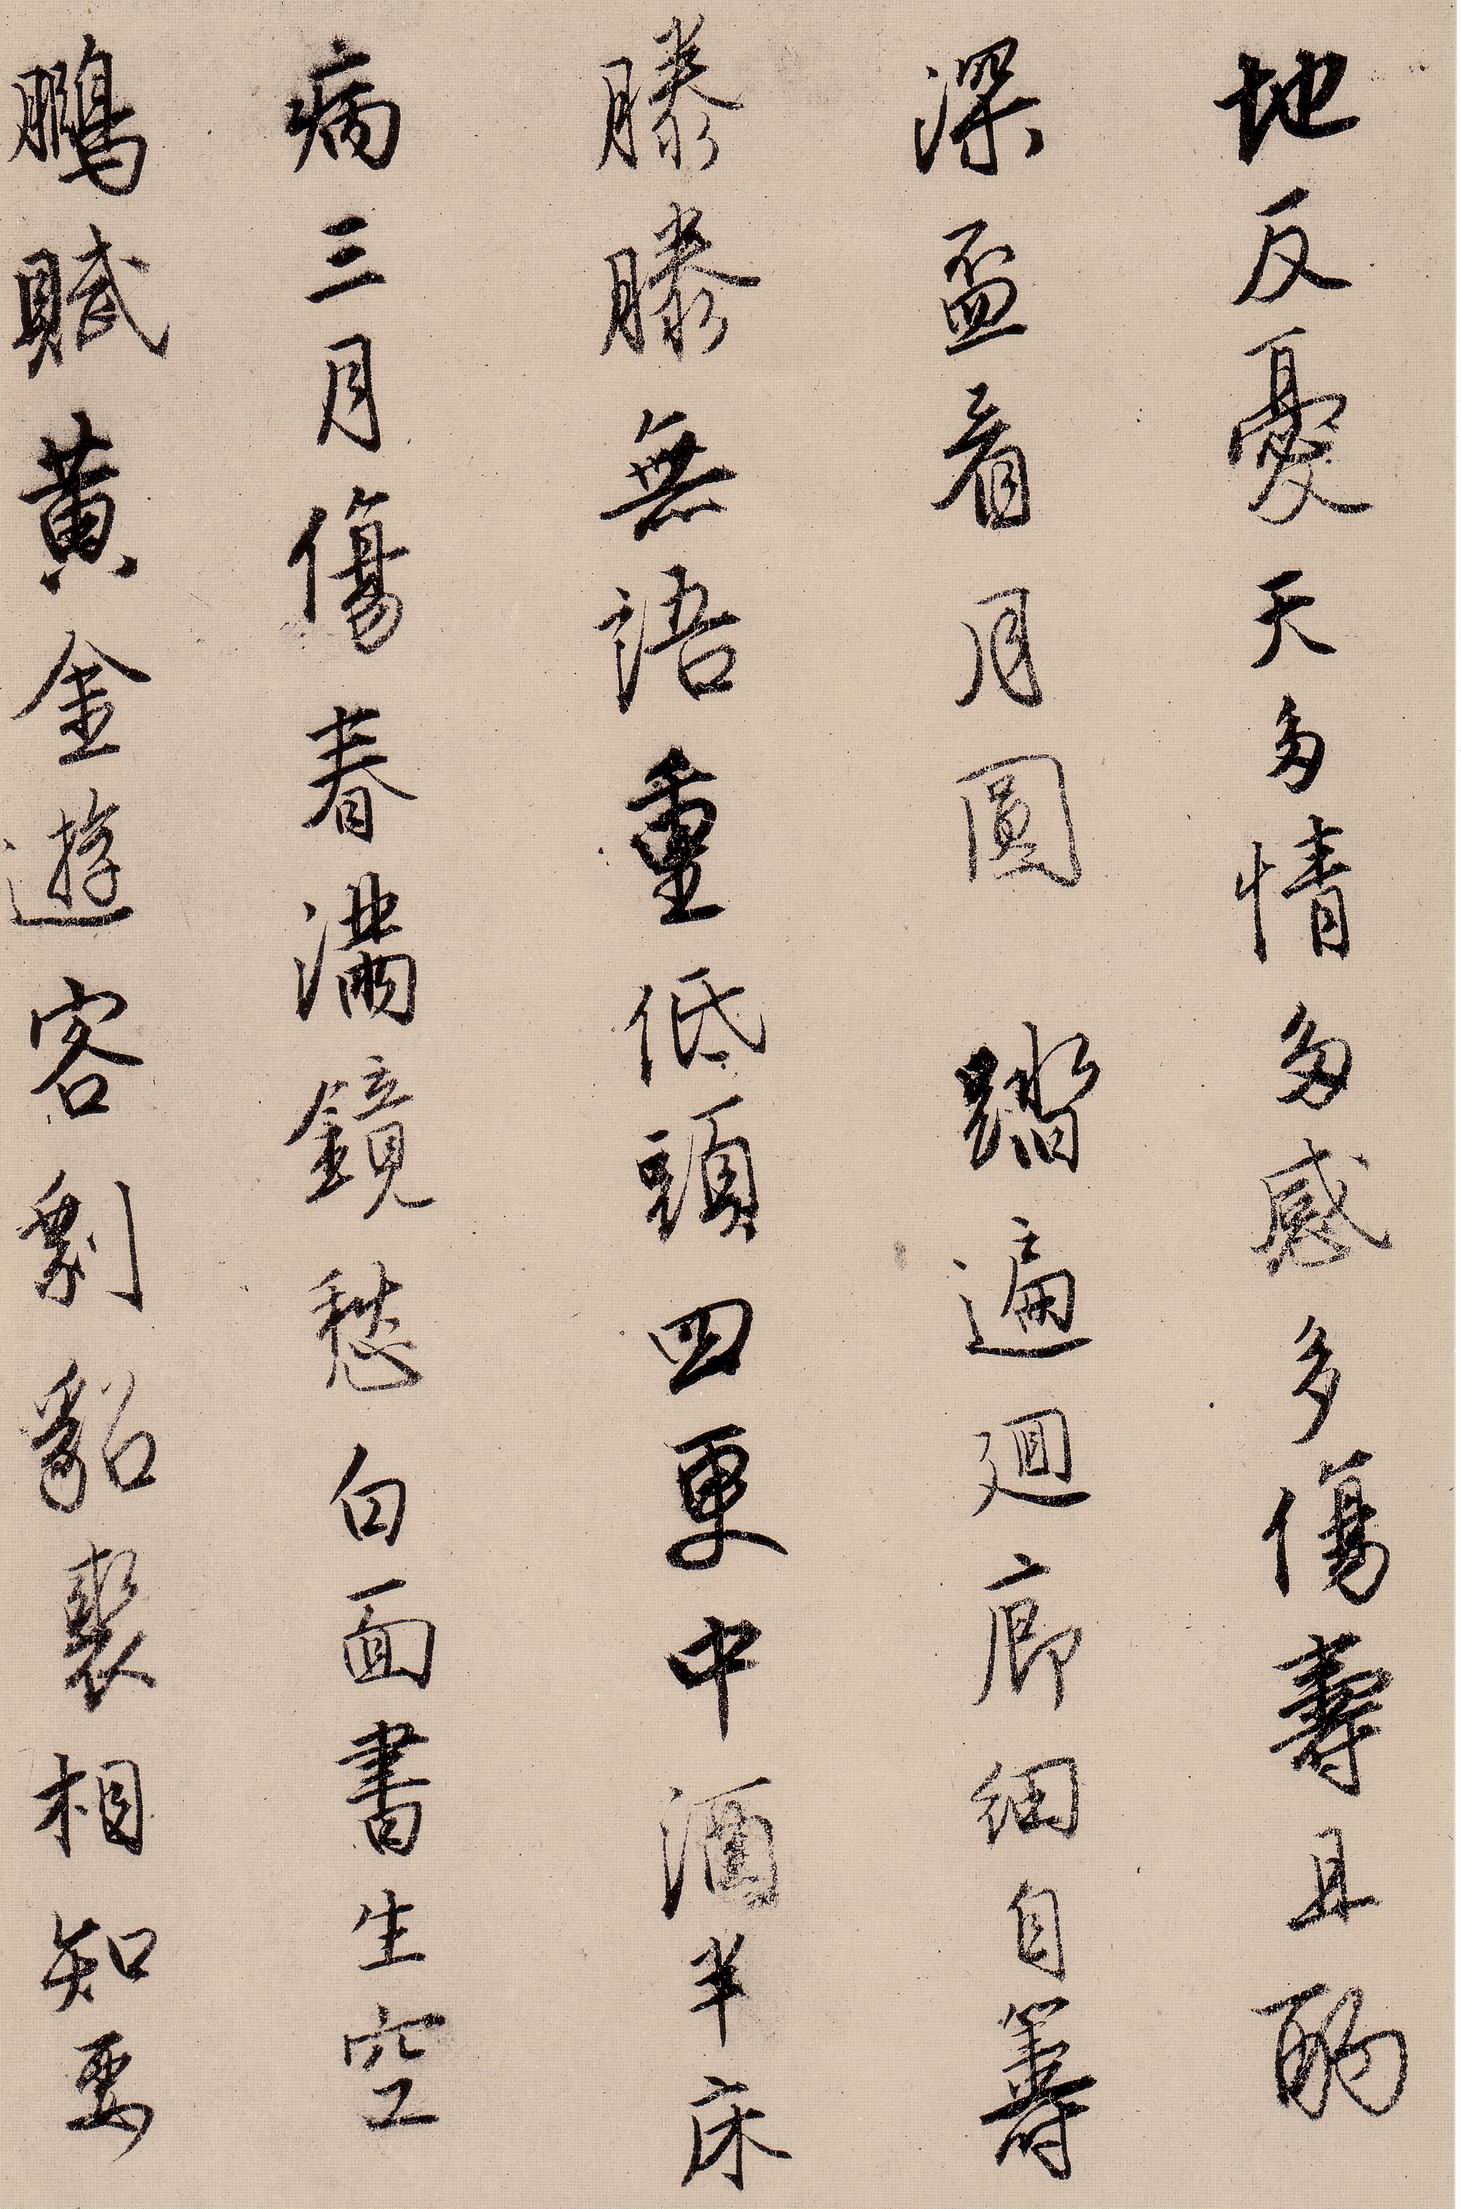 地反憂天多情多感多傷壽且酌
深盃看月圓 踏遍迴廊細自籌
滕滕無語重低頭四更中酒半床
病三月傷春滿鏡愁白面書生空
鵩賦黃金遊客剩貂裘相知要